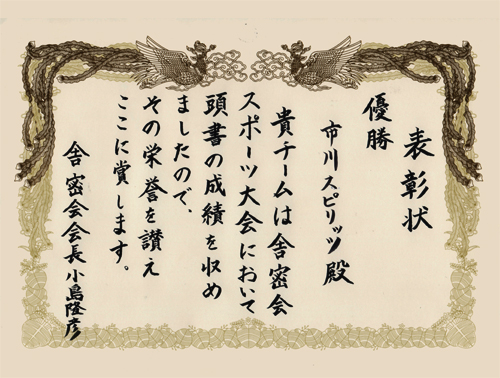 表彰状
優勝
市川スピリッツ殿
貴チームは舎密会
スポーツ大会において
頭書の成績を収め
ましたので、
その栄誉を讃え
ここに賞します。
舎密会会長小島隆彦